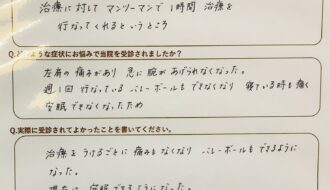 治療に対して マンツーマンで 1時間 治療を
行なってくれるというところ
Q.どのような症状にお悩みで当院を受診されましたか?
左肩の痛みがあり 急に腕があげられなくなった。
週1回 行なっているバレーボールもできなくなり 寝ている時も痛く
安眠できなくなったため
Q.実際に受診されてよかったことを書いてください。
治療をうけるごとに 痛みもなくなり バレーボールもできるように
なった。
現在は 安眠できるようになった。